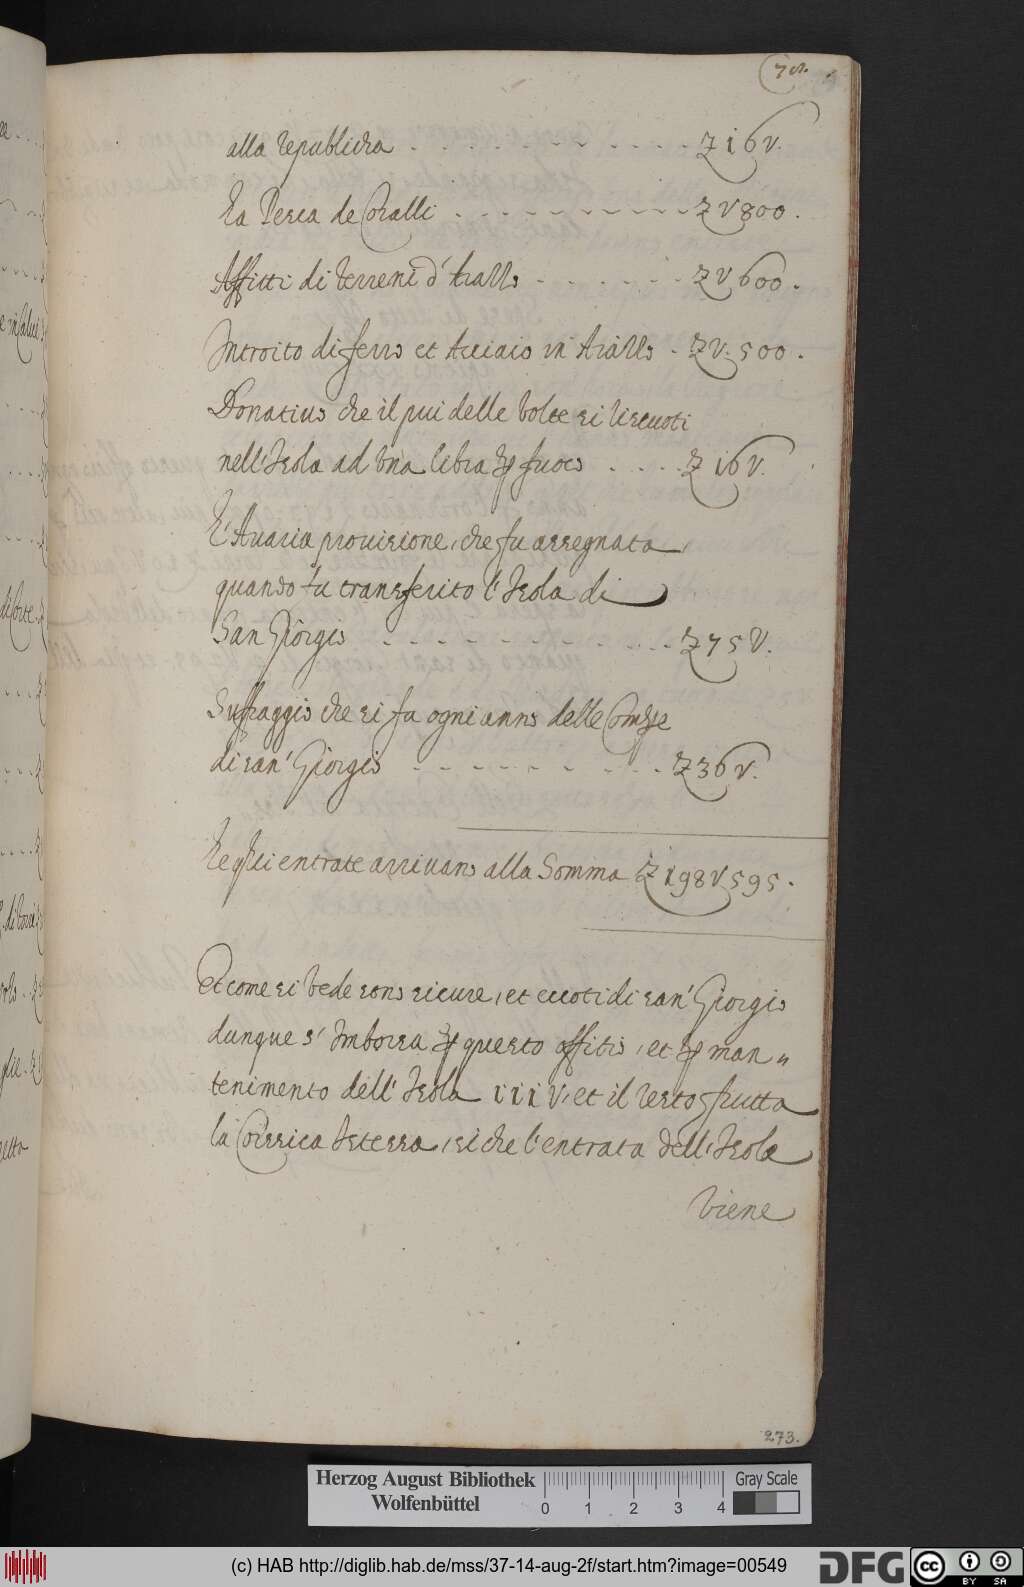 alla republicha . . . . . . . . . . . £ 16 V.
La Pesca de Coralli . . . . . . . . . £ V 800.
Affitti di terreni d'Aiallo . . . . . . £ V 600.
Introito di ferro et Acciaio in Aiallo . £ V. 500.
Donatiuo che il piu delle volte si riscuoti
nell'Isola ad una libra ꝑ fuoco . . . . £ 16 V.
L'Auaria prouisione, che fu assegnata
quando fu transferito l'Isola di
San Giorgio . . . . . . . . . £ 75 V.
Suffraggio che si fa ogni anno delle Compe
di san' Giorgio . . . . . . . . . £ 36 V.
Le qli entrate arriuano alla Somma £ 198 V 595.
Et come si vede sono sicure, et eccoti di san' Giorgio
dunque s' Imborsa ꝑ questo offitio, et ꝑ man=
tenimento dell' Isola 111 V, et il resto frutta
la Corsica istessa, si che l'entrata dell'Isola
viene
273.
Herzog August Bibliothek
Wolfenbüttel
0 1 2 3 4
Gray Scale
(c) HAB http://diglib.hab.de/mss/37-14-aug-2f/start.htm?image=00549
DFG
cc BY SA